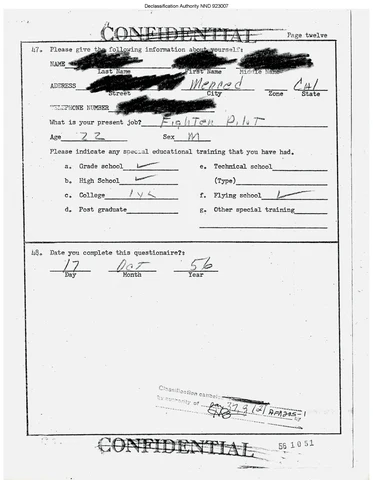 Declassification Authority NND 923007
CONFIDENTIAL
Page twelve
47. Please give the following information about yourself:
NAME
Last Name First Name Middle Name
ADDRESS Merced Cal
Street City Zone State
TELEPHONE NUMBER
What is your present job? Fighter Pilot
Age 22 Sex M
Please indicate any special educational training that you have had.
a. Grade school ✓ e. Technical school
b. High School ✓ (Type)
c. College 1 yr f. Flying school ✓
d. Post graduate g. Other special training
48. Date you complete this questionaire?:
17 Oct 56
Day Month Year
Classification
by authority of
CONFIDENTIAL